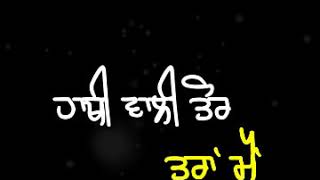 ਹਾਥੀ ਵਾਲੀ ਤੋਰ
ਤਰਾਂ ਮੈਂ